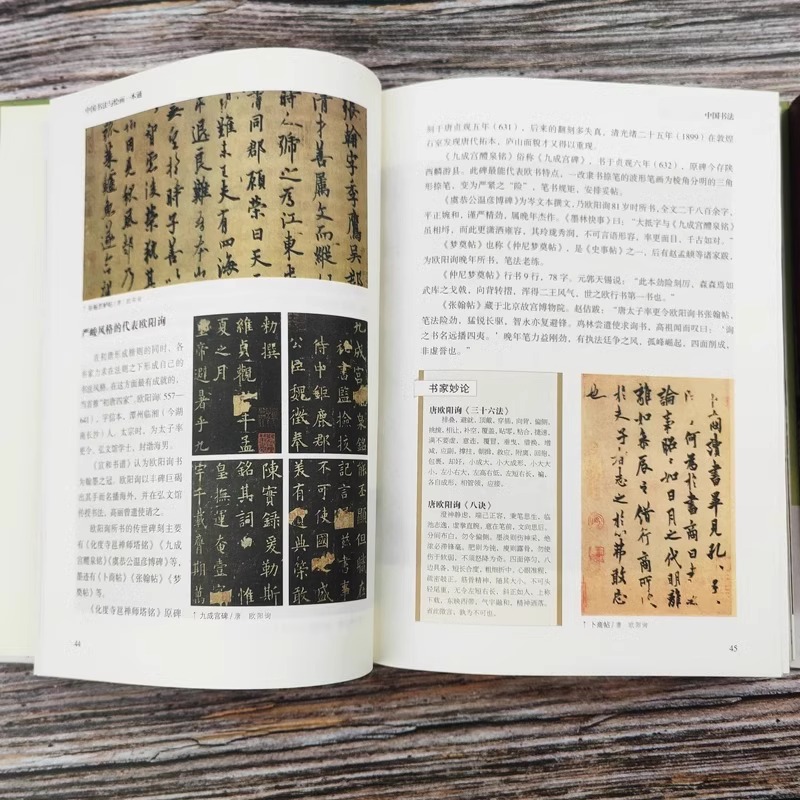 中国书法与绘画一本通
张翰字季鹰吴郡
清才善属文而纵
时之号为江东步
同郡顾荣曰天
虽未王夫有四海
退良难吾本山
张翰帖/唐 欧阳询
严峻风格的代表欧阳询
在初唐形成楷则的同时，各
书家力求在法则之下形成自己的
书法风格。在这方面最有成就的，
当首推“初唐四家”。欧阳询（557—
641），字信本，潭州临湘（今湖
南长沙）人。太宗时，为太子率
更令、弘文馆学士，封渤海男。
《宣和书谱》认为欧阳询书
为翰墨之冠。欧阳询以丰碑巨碣
出其手而名播海外，并在弘文馆
传授书法，高丽曾遣使请之。
欧阳询所书的传世碑刻主要
有《化度寺邕禅师塔铭》《九成
宫醴泉铭》《虞恭公温彦博碑》等，
墨迹有《卜商帖》《张翰帖》《梦
奠帖》等。
《化度寺邕禅师塔铭》原碑
敕撰
维贞观六年孟
夏之月
帝避暑乎九
九成宫醴泉铭
秘书监检校
侍中钜鹿郡
公臣魏徵奉
陈实录爰勒斯
铭其词曰
皇抚运奄壹
宇千载膺期万
记言
不可使国盛
美有典荣敢
↑九成宫碑/唐 欧阳询
44
中国书法
刻于唐贞观五年（631），后来的翻刻多失真，清光绪二十五年（1899）在敦煌
石室发现唐代拓本，庐山面貌才又得以重现。
《九成宫醴泉铭》俗称《九成宫碑》，书于贞观六年（632），原碑今存陕
西麟游县。此碑最能代表欧书特点，一改隶书捺笔的波形笔画为棱角分明的三角
形捺笔，变为严紧之“险”，笔书规矩，安排妥帖。
《虞恭公温彦博碑》为岑文本撰文，乃欧阳询81岁时所书，全文二千八百余字，
平正婉和，谨严精劲，属晚年杰作。《墨林快事》曰：“大抵字与《九成宫醴泉铭》
虽相埒，而此更潇洒雍容，其玲珑秀润，不可言语形容，率更面目，千古如对。”
《梦奠帖》也称《仲尼梦奠帖》，是《史事帖》之一，后有赵孟頫等诸家跋，
为欧阳询晚年所书，笔法老练。
《仲尼梦奠帖》行书9行，78字。元郭天锡说：“此本劲险刻厉，森森焉如
武库之戈戟，向背转摺，浑得二王风气，世之欧行书第一书也。”
《张翰帖》藏于北京故宫博物院。赵佶跋：“唐太子率更令欧阳询书张翰帖，
笔法险劲，猛锐长驱，智永亦复避锋。鸡林尝遣使求询书，高祖闻而叹曰：‘询
之书名远播四夷。’晚年笔力益刚劲，有执法廷争之风，孤峰崛起，四面削成，
非虚誉也。”
书家妙论
唐欧阳询《三十六法》
排叠，避就，顶戴，穿插，向背，偏侧，
挑㧕，相让，补空，覆盖，贴零，粘合，捷速，
满不要虚，意连，覆冒，垂曳，借换，增
减，应副，撑拄，朝揖，救应，附离，回抱，
包裹，却好，小成大，小大成形，小大大
小，左小右大，左高右低，左短右长，褊，
各自成形，相管领，应接。
唐欧阳询《八诀》
澄神静虑，端己正容，秉笔思生，临
池志逸。虚拳直腕，意在笔前，文向思后。
分间布白，勿令偏侧。墨淡则伤神采，绝
浓必滞锋毫。肥则为钝，瘦则露骨，勿使
伤于软弱，不须怒降为奇。四面停匀，八
边具备，短长合度，粗细折中。心眼准程，
疏密欹正。筋骨精神，随其大小。不可头
轻尾重，无令左短右长，斜正如人，上称
下载，东映西带，气宇融和，精神洒落。
省此微言，孰为不可也。
卜商读书毕见孔子孔子
问焉何为于书商曰书之
论事昭昭如日月之代明离
离如参辰之错行商所受
于夫子者志之于心弗敢忘
也
↑卜商帖/唐 欧阳询
45